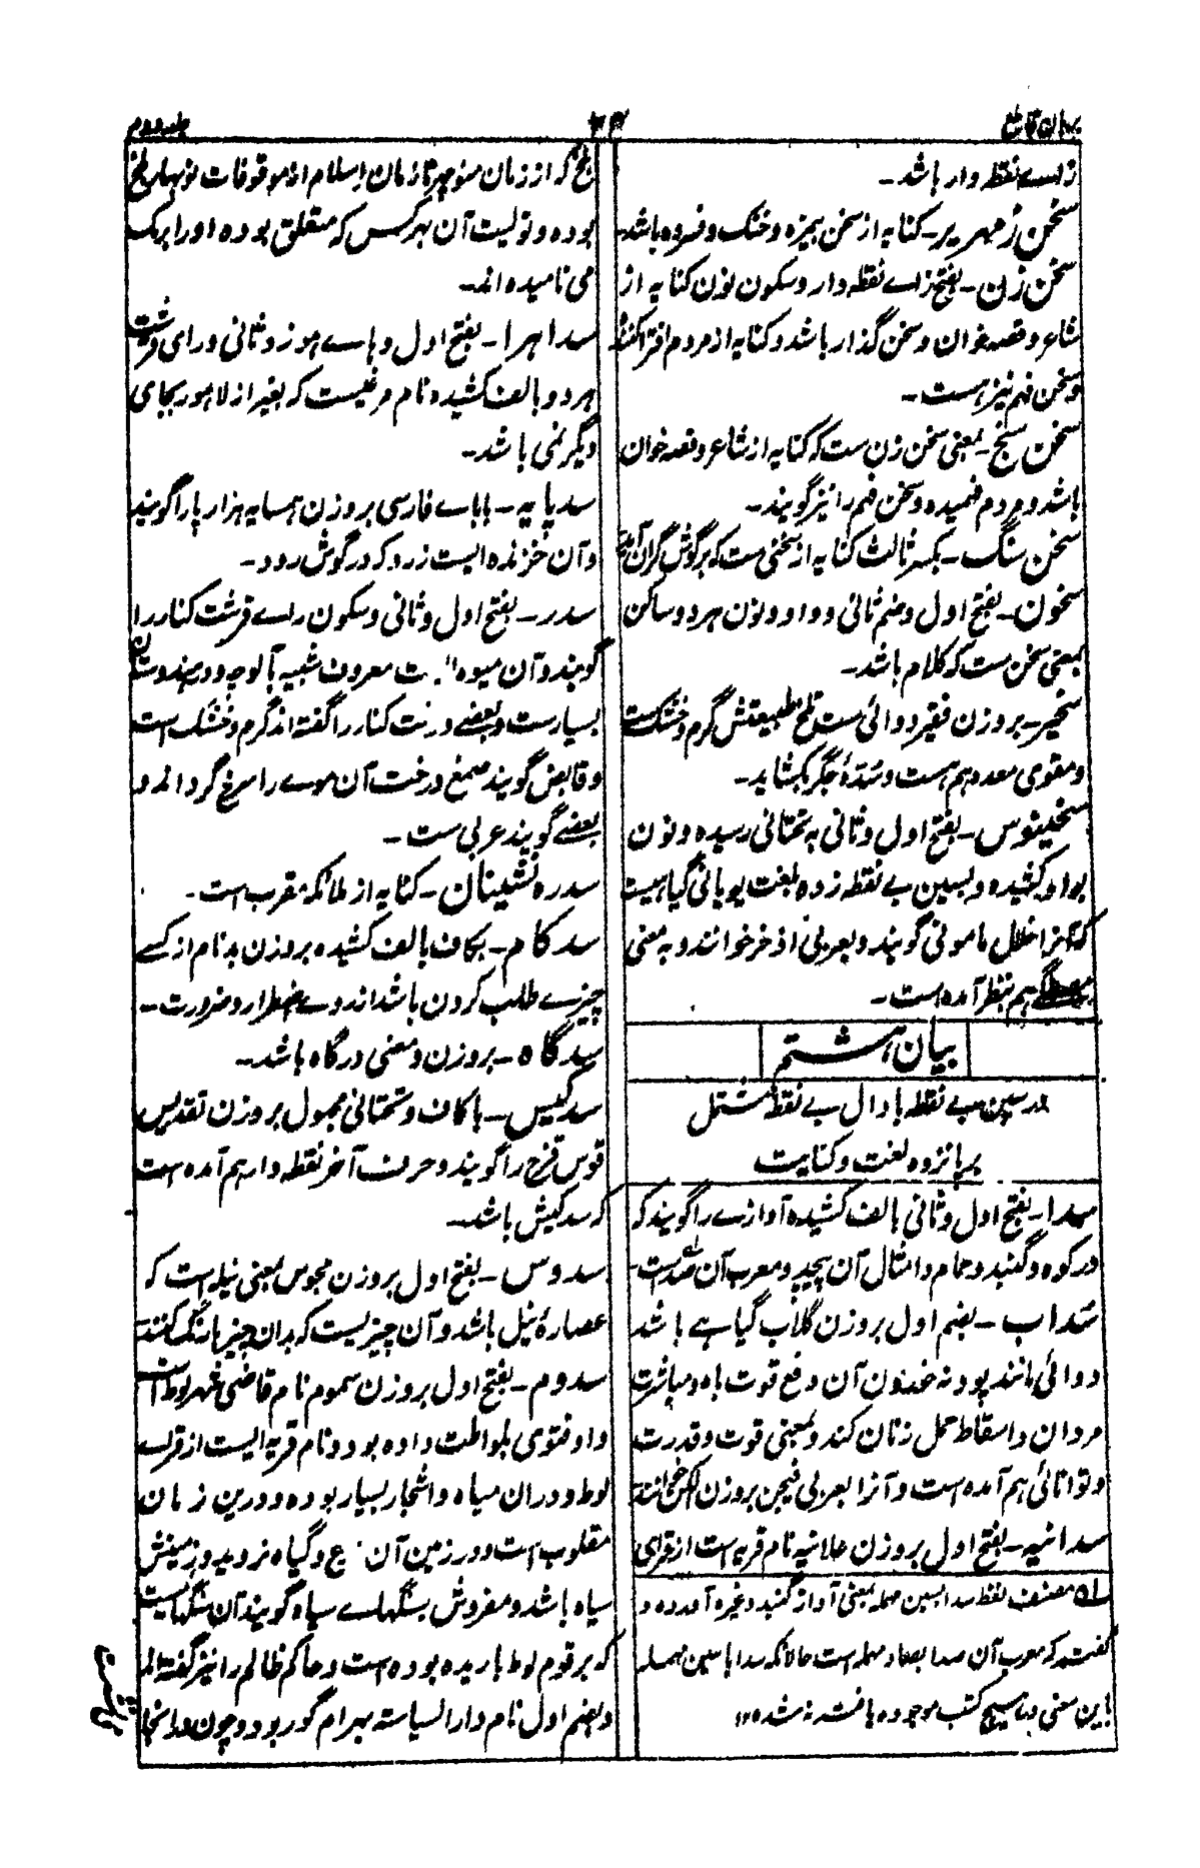 برهان قاطع
۶۴
جلد دوم
زاے نقطه دار باشد۔
سخن زمهریر۔ کنایه از سخن بیمزه و خنک و فسرده باشد۔
سخن زن۔ بفتح زاے نقطه دار و سکون نون کنایه از
شاعر و قصه خوان و سخن گذار باشد و کنایه از مردم افترا کننده
و سخن فهم نیز هست۔
سخن سنج۔ بمعنی سخن زن ست که کنایه از شاعر و قصه خوان
باشد و مردم فهمیده و سخن فهم را نیز گویند۔
سخن سنگ۔ بکسر ثالث کنایه از سخنی ست که بر گوش گران آید
سخون۔ بفتح اول و ضم ثانی و واو و نون هر دو ساکن
بمعنی سخن ست که کلام باشد۔
سخیر۔ بروزن فقیر دوائی ست تلخ طبیعتش گرم و خشک ست
و مقوی معده هم هست و سدّهٔ جگر بکشاید۔
سخینوس۔ بفتح اول و ثانی به تحتانی رسیده و نون
بواو کشیده و بسین بے نقطه زده بلغت یونانی گیاهیست
که آنرا خلال مامونی گویند و بعربی اذخر خوانند و به معنی
هم بنظر آمده است۔
بیان هشتم
در سین بے نقطه با دال بے نقطه مشتمل
بر پانزده لغت و کنایت
سدا۔ بفتح اول و ثانی بالف کشیده آوازے را گویند که
در کوه و گنبد و حمام و امثال آن پیچد و معرب آن صداست۔
سداب۔ بضم اول بروزن گلاب گیاهے باشد
دوائی مانند پودنه خوردن آن دفع قوت باه و مباشرت
مردان و اسقاط حمل زنان کند و بمعنی قوت و قدرت
و توانائی هم آمده است و آنرا بعربی فیجن بروزن الکن خوانند
سدانیه۔ بفتح اول بروزن علانیه نام قریه است از قرای
له مصنف لفظ سدا بسین مهمله بمعنی آواز گنبد و غیره آورده و
گفته که معرب آن صدا بصاد مهمله است حالانکه سدا با سین مهمله
باین معنی در هیچ کتب موجوده یافته نه شده ۱۲
بلخ که از زمان منوچهر تا زمان اسلام از موقوفات نوبهار بلخ
بوده و تولیت آن بهر کس که متعلق بوده او را برمک
می نامیده اند۔
سداهرا۔ بفتح اول و هاے هوز و ثانی و رای قرشت
هر دو بالف کشیده نام مرغیست که بغیر از لاهور بجای
دیگر نمی باشد۔
سدپایه۔ با باے فارسی بروزن همسایه هزارپا را گویند
و آن خزنده ایست زرد که در گوش رود۔
سدر۔ بفتح اول و ثانی و سکون راے قرشت کنار را
گویند و آن میوه ایست معروف شبیه بآلوچه و در هندوستان
بسیارست و بعضے درخت کنار را گفته اند گرم و خشک است
و قابض گویند صمغ درخت آن موے را سرخ گرداند و
بعضے گویند عربی ست۔
سدره نشینان۔ کنایه از ملائکه مقرب است۔
سدکام۔ بکاف بالف کشیده بروزن بدنام از کسے
چیزے طلب کردن باشد از روے اضطرار و ضرورت۔
سدگاه۔ بروزن و معنی درگاه باشد۔
سدکیس۔ با کاف و تحتانی مجهول بروزن تقدیس
قوس قزح را گویند و حرف آخر نقطه دار هم آمده است
که سدکیش باشد۔
سدوس۔ بفتح اول بروزن مجوس بمعنی نیله است که
عصارهٔ نیل باشد و آن چیزیست که بدان چیزها رنگ کنند
سدوم۔ بفتح اول بروزن سموم نام قاضی شهر لوط است
و او فتوی بلواطت داده بود و نام قریه ایست از قرای
لوط و دران میاه و اشجار بسیار بوده و درین زمان
مقلوب است و در زمین آن زرع و گیاه نروید و زمینش
سیاه باشد و مفروش بسنگهاے سیاه گویند آن سنگهاست
که بر قوم لوط باریده بوده است و حاکم ظالم را نیز گفته اند
و بضم اول نام دار السیاسته بهرام گور بود و چون در آنجا